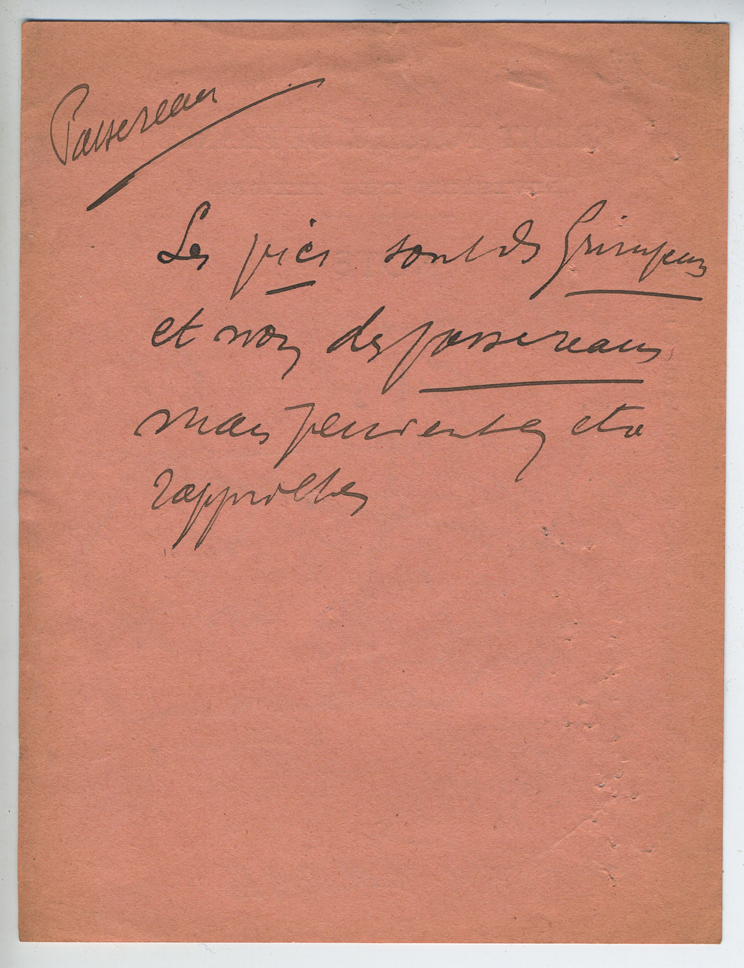 Passereaux
Les pics sont des Grimpeurs
et non des passereaux
mais peuvent en être
rapprochés